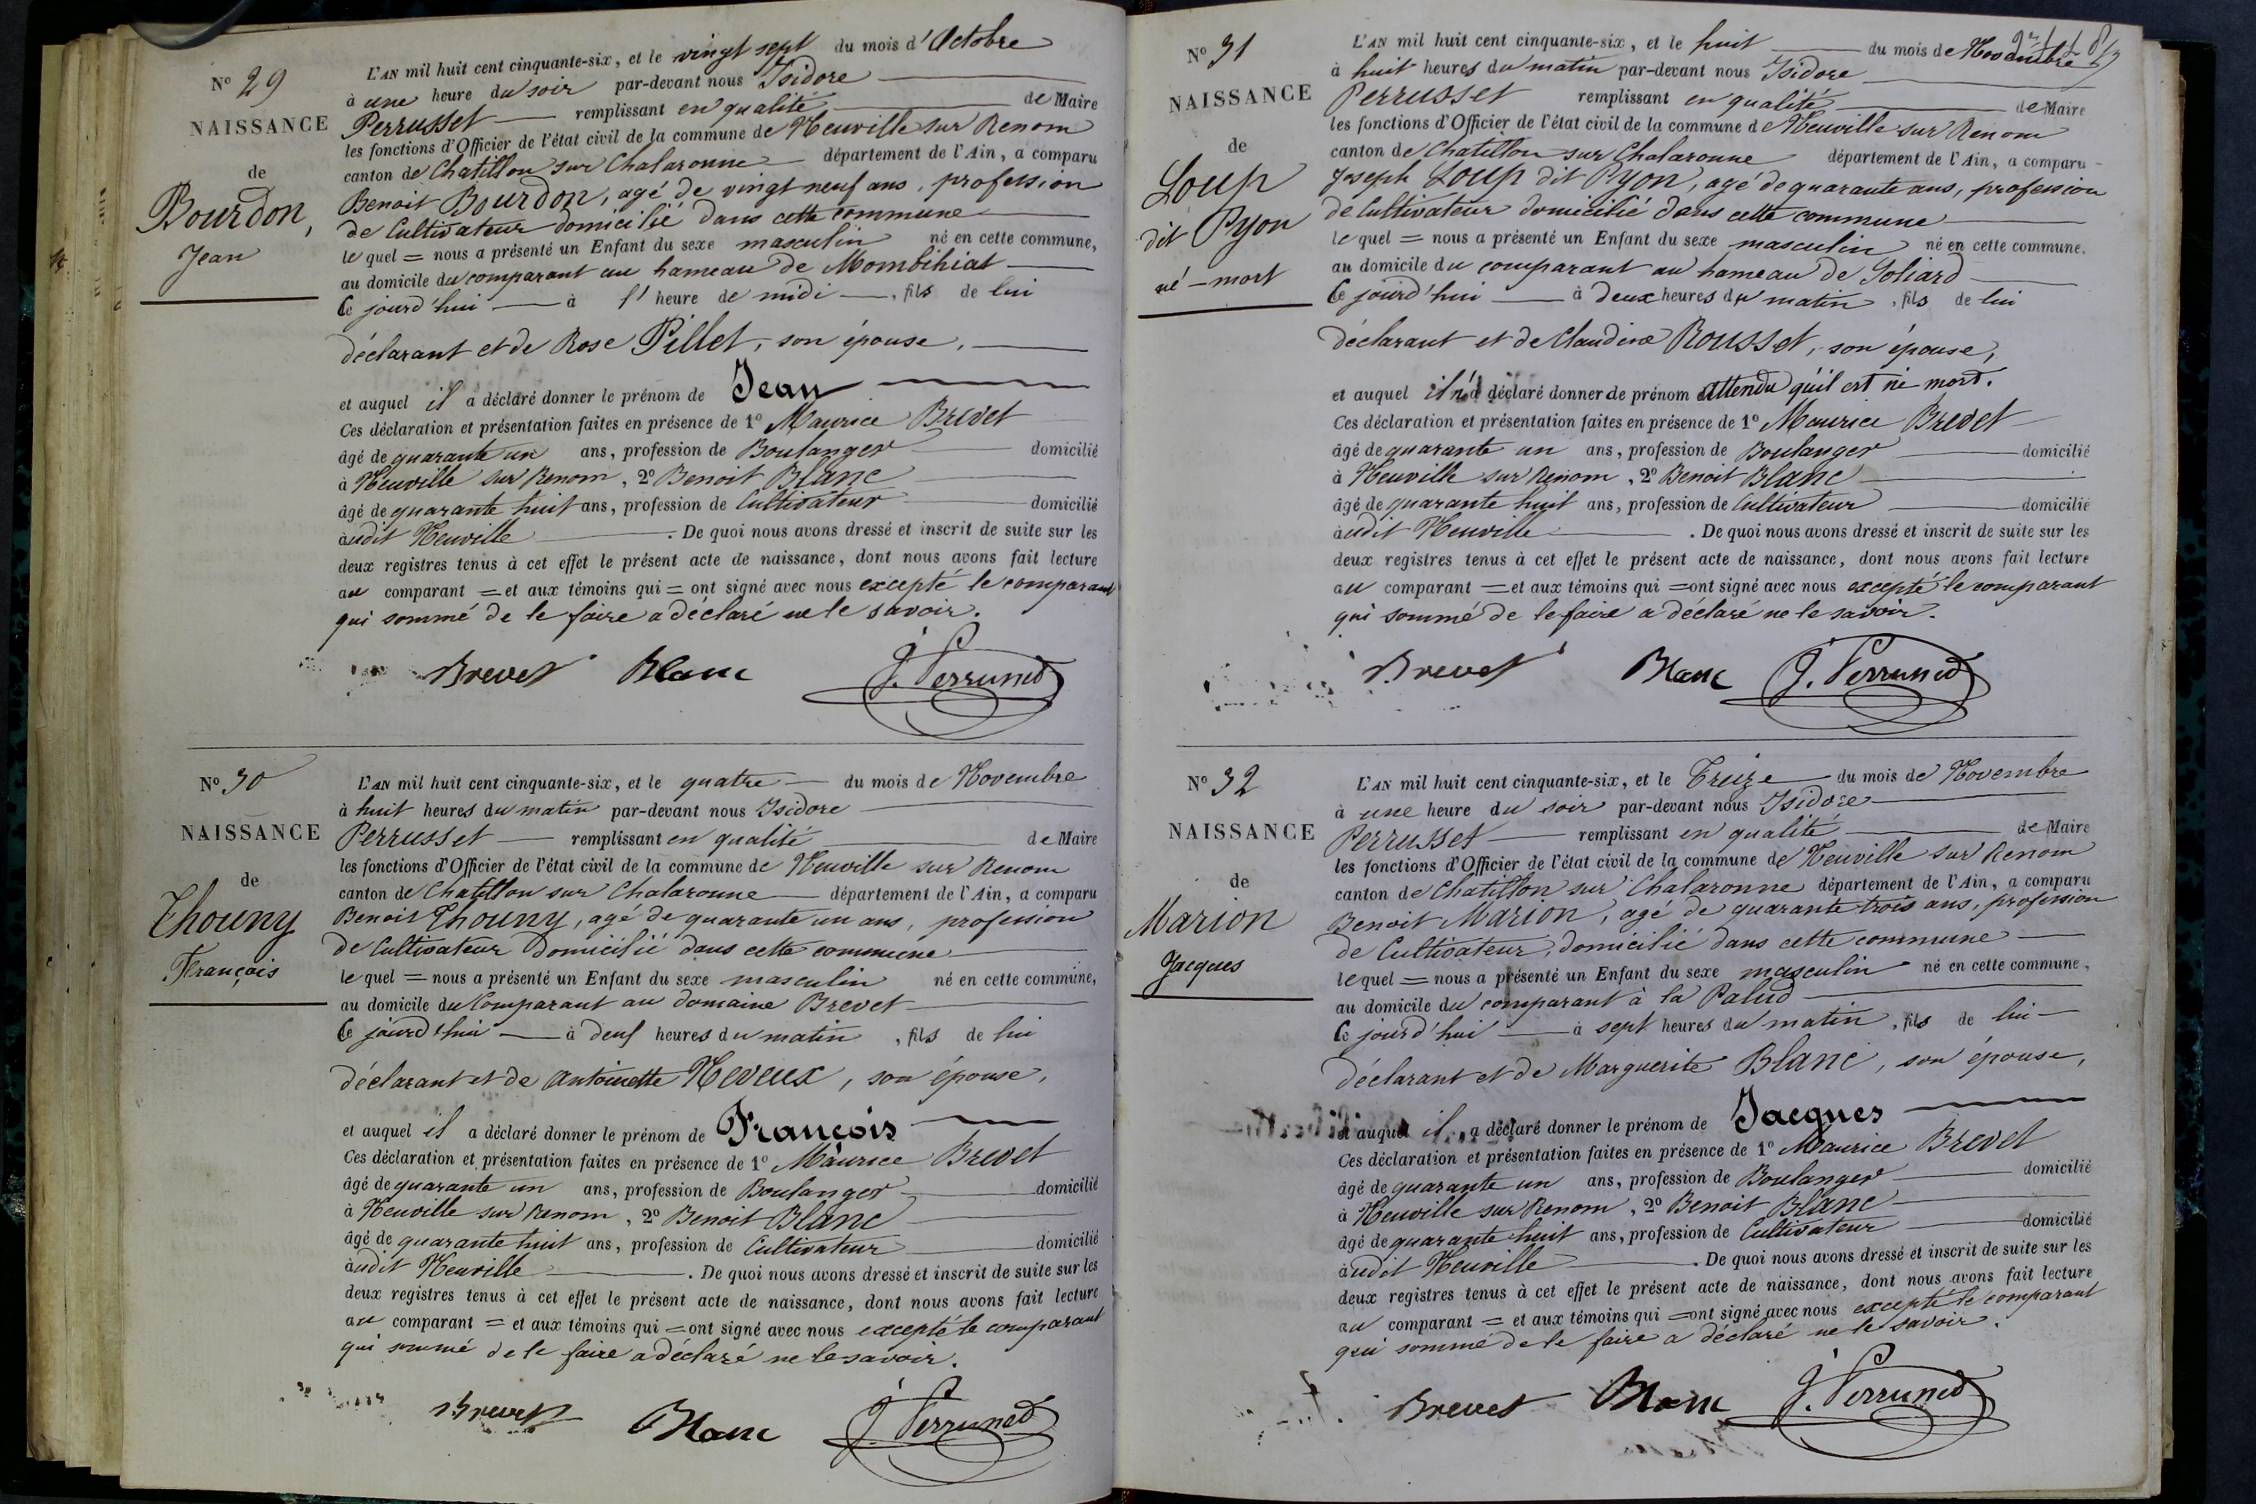 N° 29
NAISSANCE
de
Bourdon,
Jean
L'AN mil huit cent cinquante-six, et le vingt sept du mois d'Octobre
à une heure du soir par-devant nous Isidore
Perrusset remplissant en qualité de Maire
les fonctions d'Officier de l'état civil de la commune de Neuville sur Renom
canton de Chatillon sur Chalaronne département de l'Ain, a comparu
Benoit Bourdon, agé de vingt neuf ans, profession
de Cultivateur domicilié dans cette commune
lequel = nous a présenté un Enfant du sexe masculin né en cette commune,
au domicile du comparant au hameau de Mombihiat
Ce jourd'hui à l'heure de midi, fils de lui
déclarant et de Rose Pillet, son épouse,
et auquel il a déclaré donner le prénom de Jean
Ces déclaration et présentation faites en présence de 1° Maurice Brevet
âgé de quarante un ans, profession de Boulanger domicilié
à Neuville sur Renom, 2° Benoit Blanc
âgé de quarante huit ans, profession de Cultivateur domicilié
audit Neuville. De quoi nous avons dressé et inscrit de suite sur les
deux registres tenus à cet effet le présent acte de naissance, dont nous avons fait lecture
au comparant = et aux témoins qui = ont signé avec nous excepté le comparant
qui sommé de le faire a déclaré ne le savoir.
Brevet Blanc J. Perrusset
N° 30
NAISSANCE
de
Thouny
François
L'AN mil huit cent cinquante-six, et le quatre du mois de Novembre
à huit heures du matin par-devant nous Isidore
Perrusset remplissant en qualité de Maire
les fonctions d'Officier de l'état civil de la commune de Neuville sur Renom
canton de Chatillon sur Chalaronne département de l'Ain, a comparu
Benoit Thouny, agé de quarante un ans, profession
de Cultivateur domicilié dans cette commune
lequel = nous a présenté un Enfant du sexe masculin né en cette commune,
au domicile du Comparant au domaine Brevet
Ce jourd'hui à deux heures du matin, fils de lui
déclarant et de Antoinette Neveux, son épouse,
et auquel il a déclaré donner le prénom de François
Ces déclaration et présentation faites en présence de 1° Maurice Brevet
âgé de quarante un ans, profession de Boulanger domicilié
à Neuville sur Renom, 2° Benoit Blanc
âgé de quarante huit ans, profession de Cultivateur domicilié
audit Neuville. De quoi nous avons dressé et inscrit de suite sur les
deux registres tenus à cet effet le présent acte de naissance, dont nous avons fait lecture
au comparant = et aux témoins qui = ont signé avec nous excepté le comparant
qui sommé de le faire a déclaré ne le savoir.
Brevet Blanc J. Perrusset
N° 31
NAISSANCE
de
Loup
dit Pyon
né-mort
L'AN mil huit cent cinquante-six, et le huit du mois de Novembre
à huit heures du matin par-devant nous Isidore
Perrusset remplissant en qualité de Maire
les fonctions d'Officier de l'état civil de la commune de Neuville sur Renom
canton de Chatillon sur Chalaronne département de l'Ain, a comparu
Joseph Loup dit Pyon, agé de quarante ans, profession
de Cultivateur domicilié dans cette commune
lequel = nous a présenté un Enfant du sexe masculin né en cette commune.
au domicile du comparant au hameau de Joliard
Ce jourd'hui à deux heures du matin, fils de lui
déclarant et de Claudine Rousset, son épouse,
et auquel il n'a déclaré donner de prénom attendu qu'il est né mort.
Ces déclaration et présentation faites en présence de 1° Maurice Brevet
âgé de quarante un ans, profession de Boulanger domicilié
à Neuville sur Renom, 2° Benoit Blanc
âgé de quarante huit ans, profession de Cultivateur domicilié
audit Neuville. De quoi nous avons dressé et inscrit de suite sur les
deux registres tenus à cet effet le présent acte de naissance, dont nous avons fait lecture
au comparant = et aux témoins qui = ont signé avec nous excepté le comparant
qui sommé de le faire a déclaré ne le savoir.
Brevet Blanc J. Perrusset
N° 32
NAISSANCE
de
Marion
Jacques
L'AN mil huit cent cinquante-six, et le Treize du mois de Novembre
à une heure du soir par-devant nous Isidore
Perrusset remplissant en qualité de Maire
les fonctions d'Officier de l'état civil de la commune de Neuville sur Renom
canton de Chatillon sur Chalaronne département de l'Ain, a comparu
Benoit Marion, agé de quarante trois ans, profession
de Cultivateur, domicilié dans cette commune
lequel = nous a présenté un Enfant du sexe masculin né en cette commune,
au domicile du comparant à la Palud
Ce jourd'hui à sept heures du matin, fils de lui
déclarant et de Marguerite Blanc, son épouse,
et auquel il a déclaré donner le prénom de Jacques
Ces déclaration et présentation faites en présence de 1° Maurice Brevet
âgé de quarante un ans, profession de Boulanger domicilié
à Neuville sur Renom, 2° Benoit Blanc
âgé de quarante huit ans, profession de Cultivateur domicilié
audit Neuville. De quoi nous avons dressé et inscrit de suite sur les
deux registres tenus à cet effet le présent acte de naissance, dont nous avons fait lecture
au comparant = et aux témoins qui = ont signé avec nous excepté le comparant
qui sommé de le faire a déclaré ne le savoir.
Brevet Blanc J. Perrusset